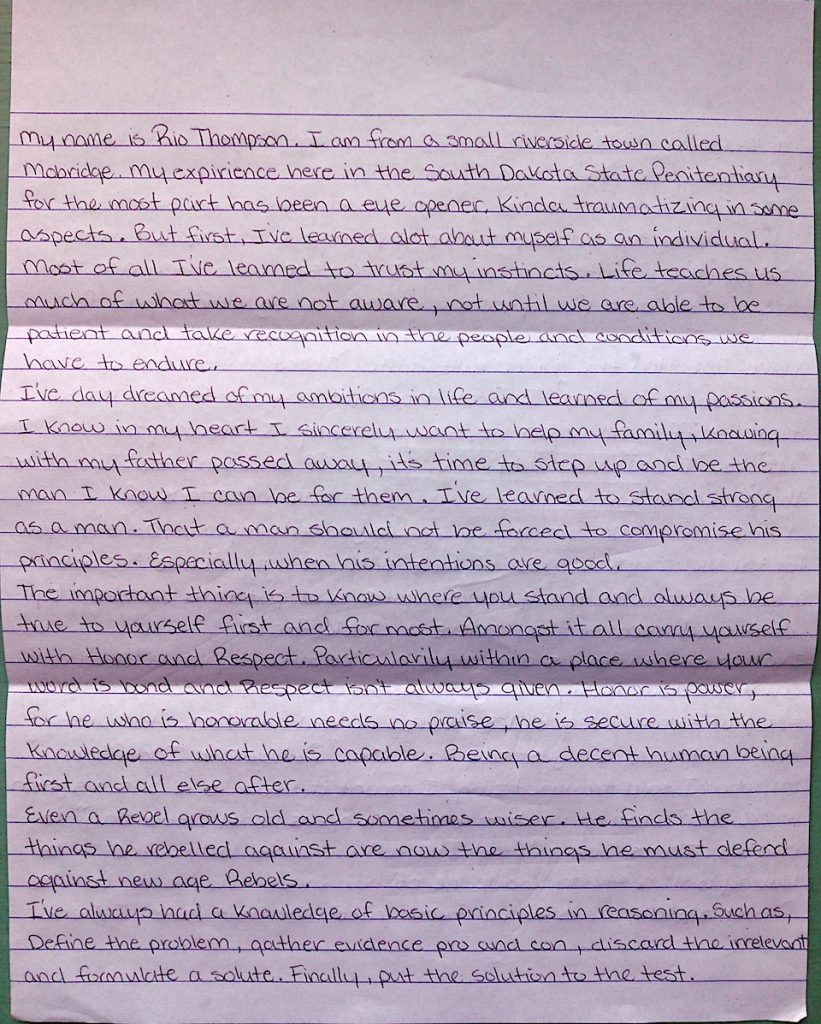 My name is Rio Thompson. I am from a small riverside town called
Mobridge. My expirience here in the South Dakota State Penitentiary
for the most part has been a eye opener. Kinda traumatizing in some
aspects. But first, I've learned alot about myself as an individual.
Most of all I've learned to trust my instincts. Life teaches us
much of what we are not aware, not until we are able to be
patient and take recognition in the people and conditions we
have to endure.
I've day dreamed of my ambitions in life and learned of my passions.
I know in my heart I sincerely want to help my family, knowing
with my father passed away, it's time to step up and be the
man I know I can be for them. I've learned to stand strong
as a man. That a man should not be forced to compromise his
principles. Especially, when his intentions are good.
The important thing is to know where you stand and always be
true to yourself first and for most. Amongst it all carry yourself
with Honor and Respect. Particularily within a place where your
word is bond and Respect isn't always given. Honor is power,
for he who is honorable needs no praise, he is secure with the
knowledge of what he is capable. Being a decent human being
first and all else after.
Even a Rebel grows old and sometimes wiser. He finds the
things he rebelled against are now the things he must defend
against new age Rebels.
I've always had a knowledge of basic principles in reasoning. Such as,
Define the problem, gather evidence pro and con, discard the irrelevant
and formulate a solute. Finally, put the solution to the test.